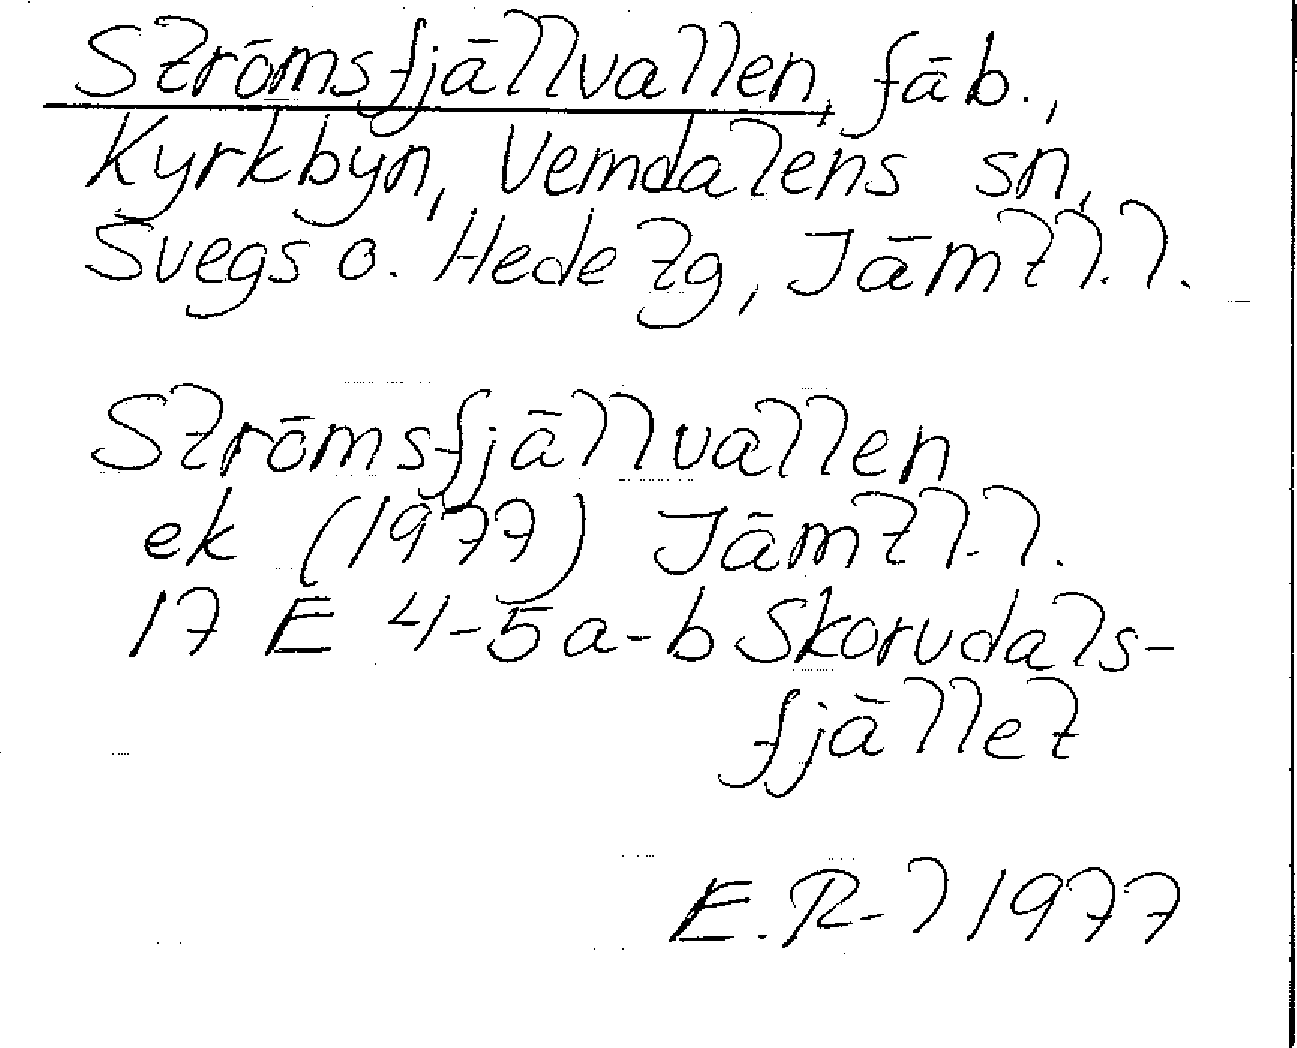 Strömsfjällvallen, fäb.,
Kyrkbyn, Vemdalens sn,
Svegs o. Hede tg, Jämtl.l.
Strömsfjällvallen
ek (1977) Jämtl.l.
17 E 4-5 a-b Skorudals-
fjället
E. R-l 1977